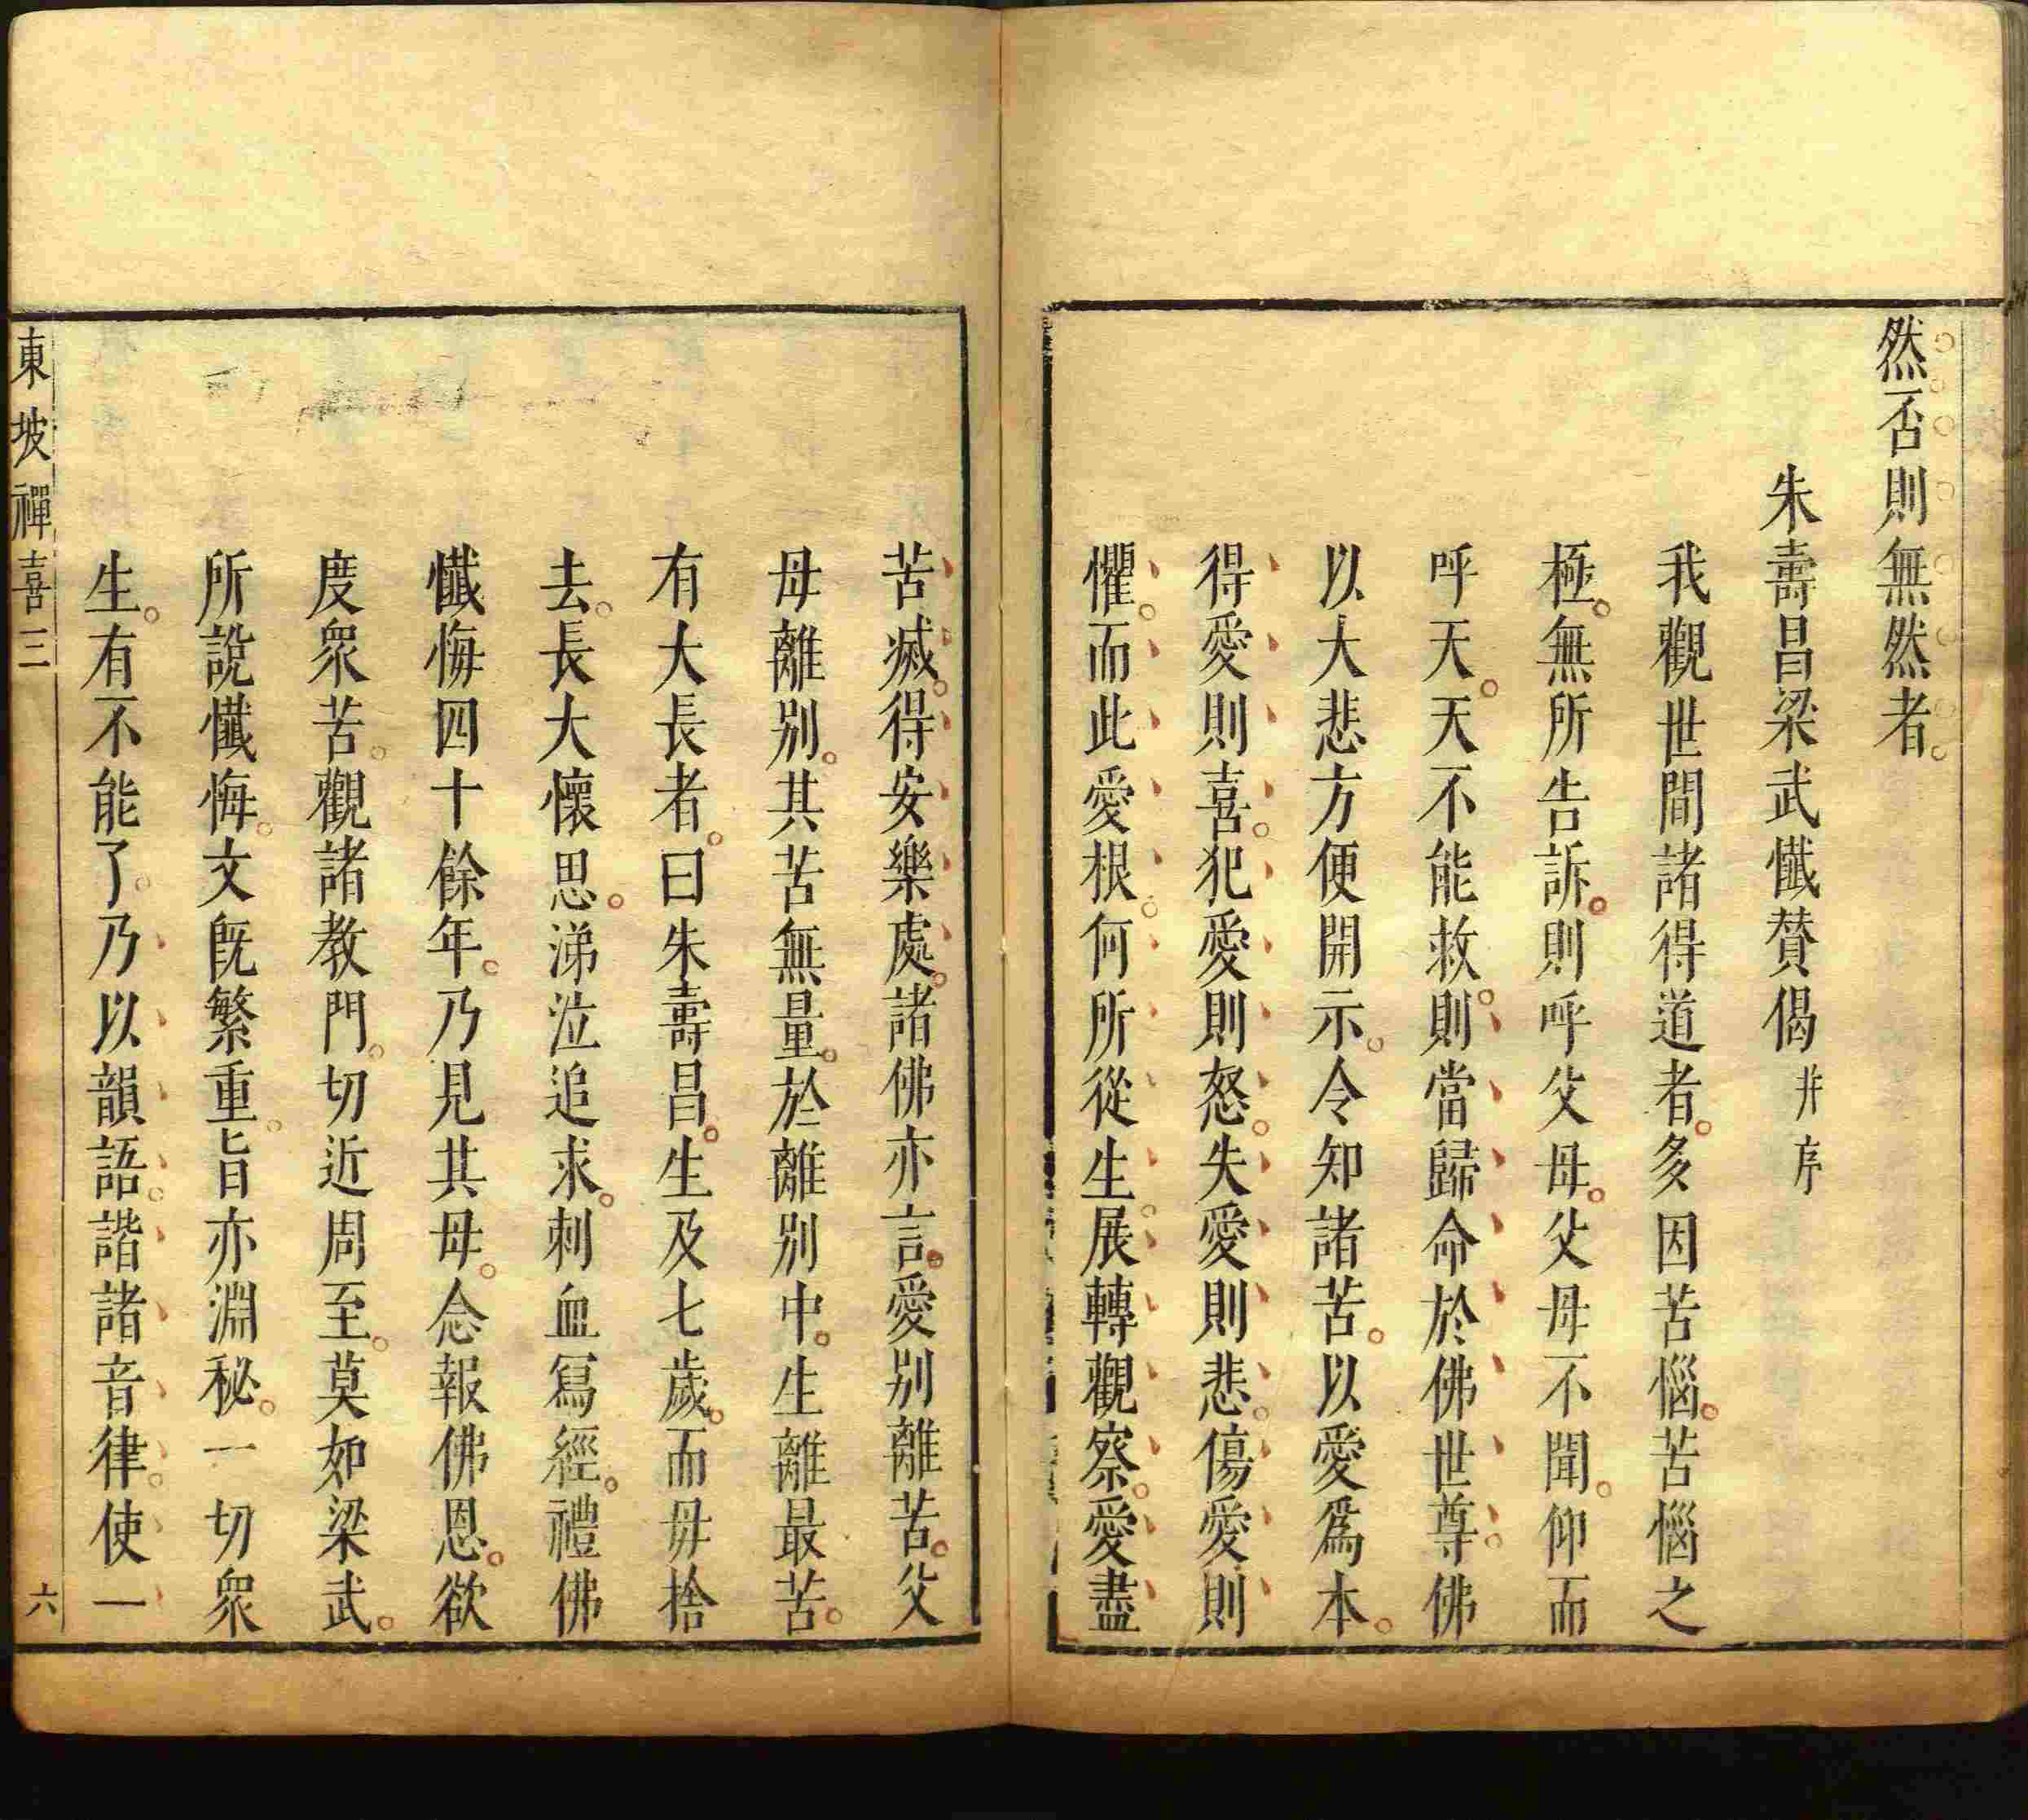 然否則無然者
朱壽昌梁武懺贊偈并序
我觀世間諸得道者多因苦惱苦惱之
極無所告訴則呼父母父母不聞仰而
呼天天不能救則當歸命於佛世尊佛
以大悲方便開示令知諸苦以愛爲本
得愛則喜犯愛則怒失愛則悲傷愛則
懼而此愛根何所從生展轉觀察愛盡
苦滅得安樂處諸佛亦言愛別離苦父
母離別其苦無量於離別中生離最苦
有大長者曰朱壽昌生及七歲而母捨
去長大懷思涕泣追求刺血寫經禮佛
懺悔四十餘年乃見其母念報佛恩欲
度衆苦觀諸教門切近周至莫如梁武
所說懺悔文既繁重旨亦淵秘一切衆
生有不能了乃以韻語諧諸音律使一
東坡禪喜三
六